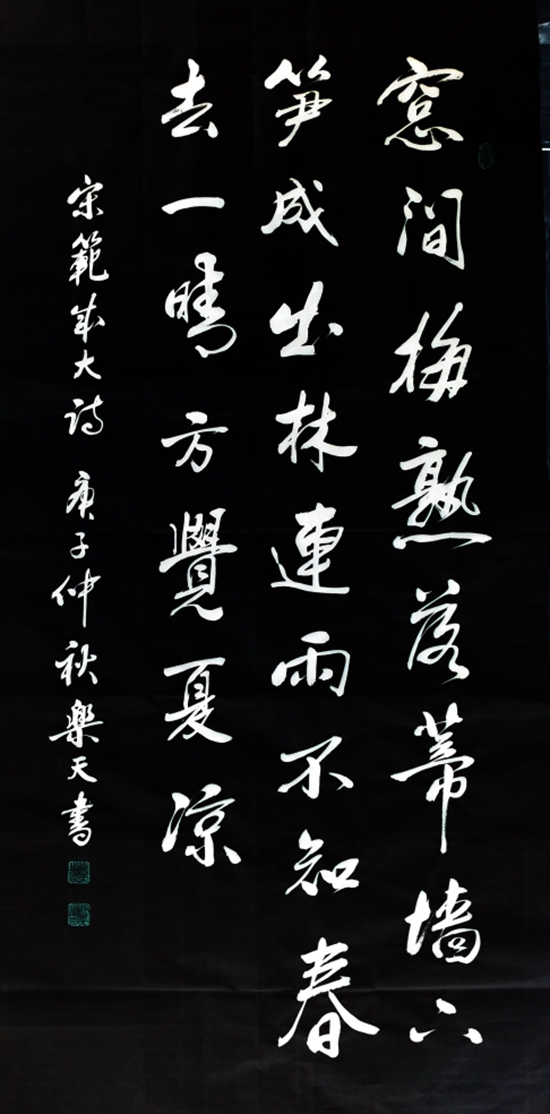 窓間梅熟落蒂墙下
笋成出林連雨不知春
去一晴方覺夏凉
宋範成大詩 庚子仲秋樂天書